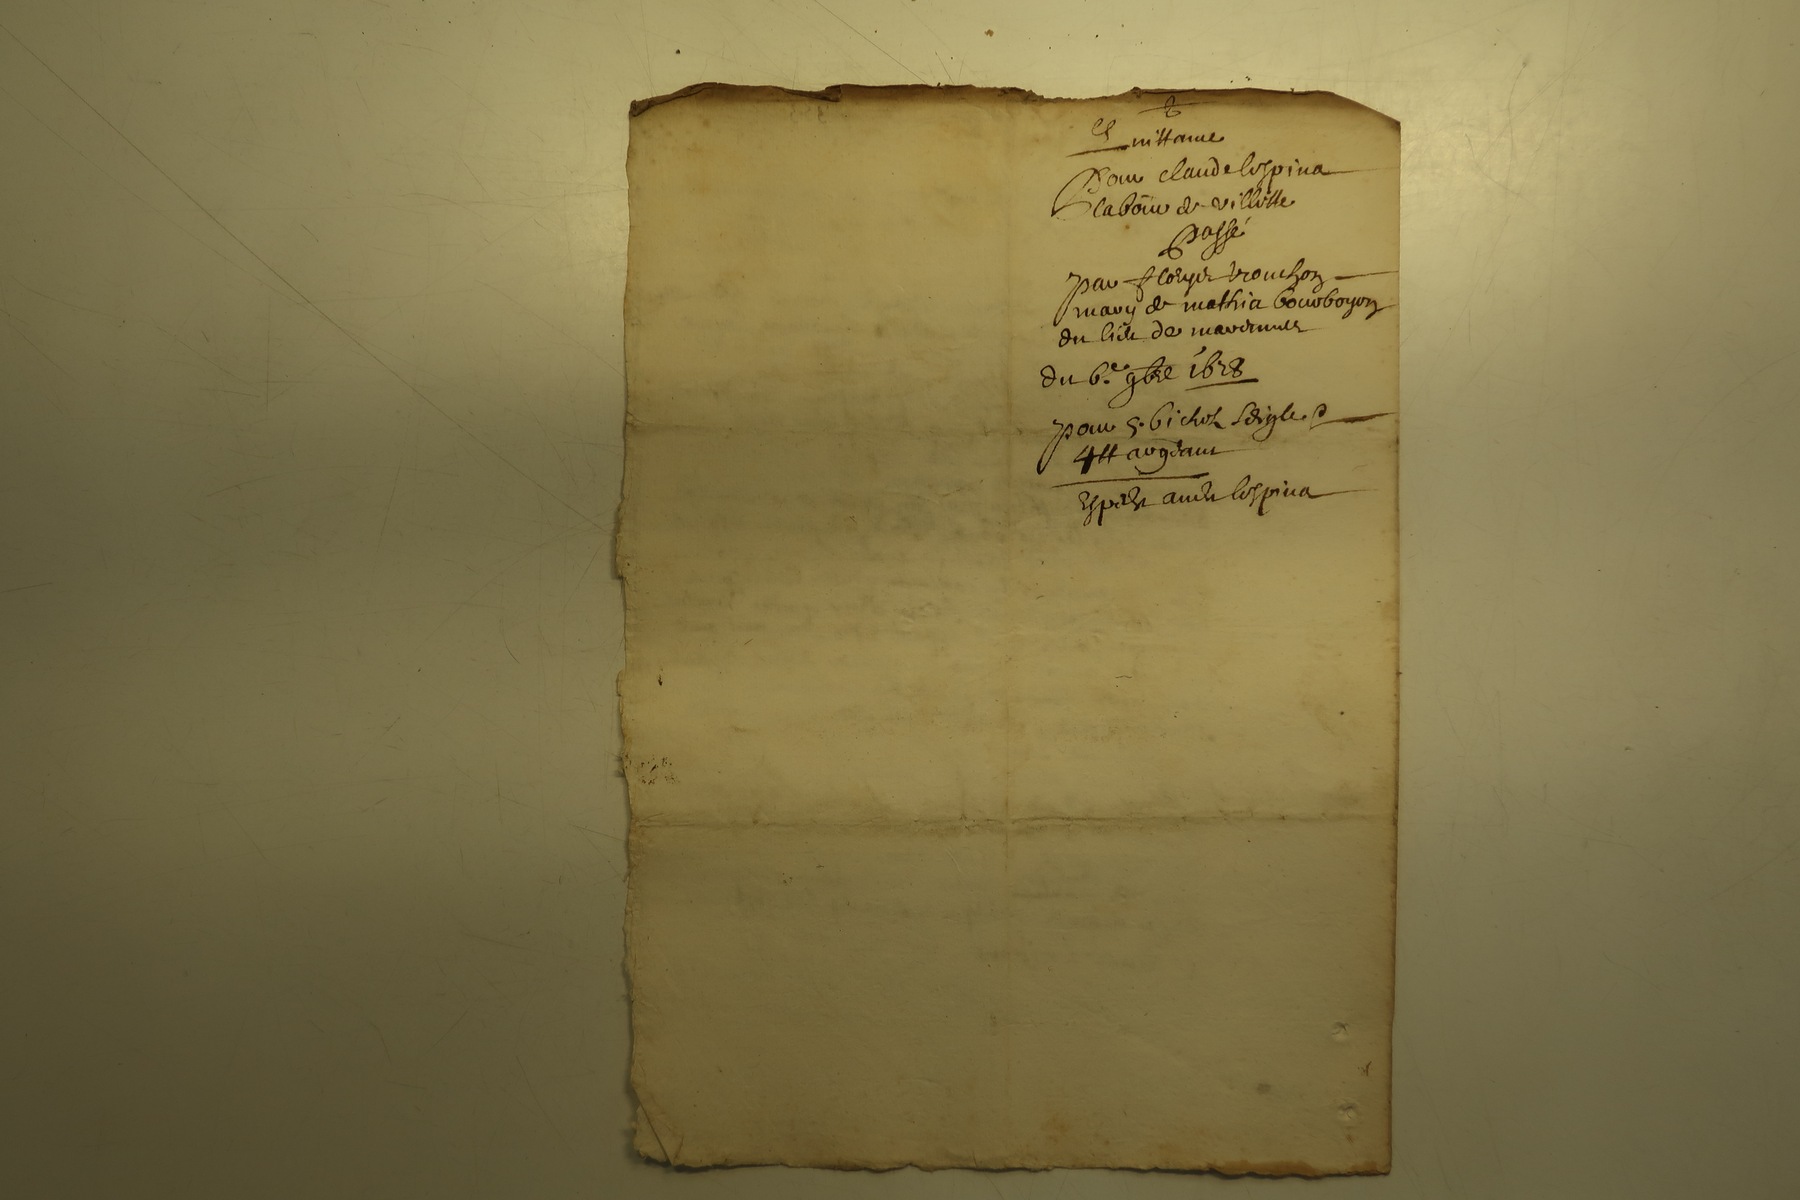 Quittance
Pour claude lespina
labour de villette
Passé
par trouchon
mary de mathia bourboyon
du lieu de
du 6.e 9bre 1658
pour 5. bichet seigle
4tt argeant
lespina